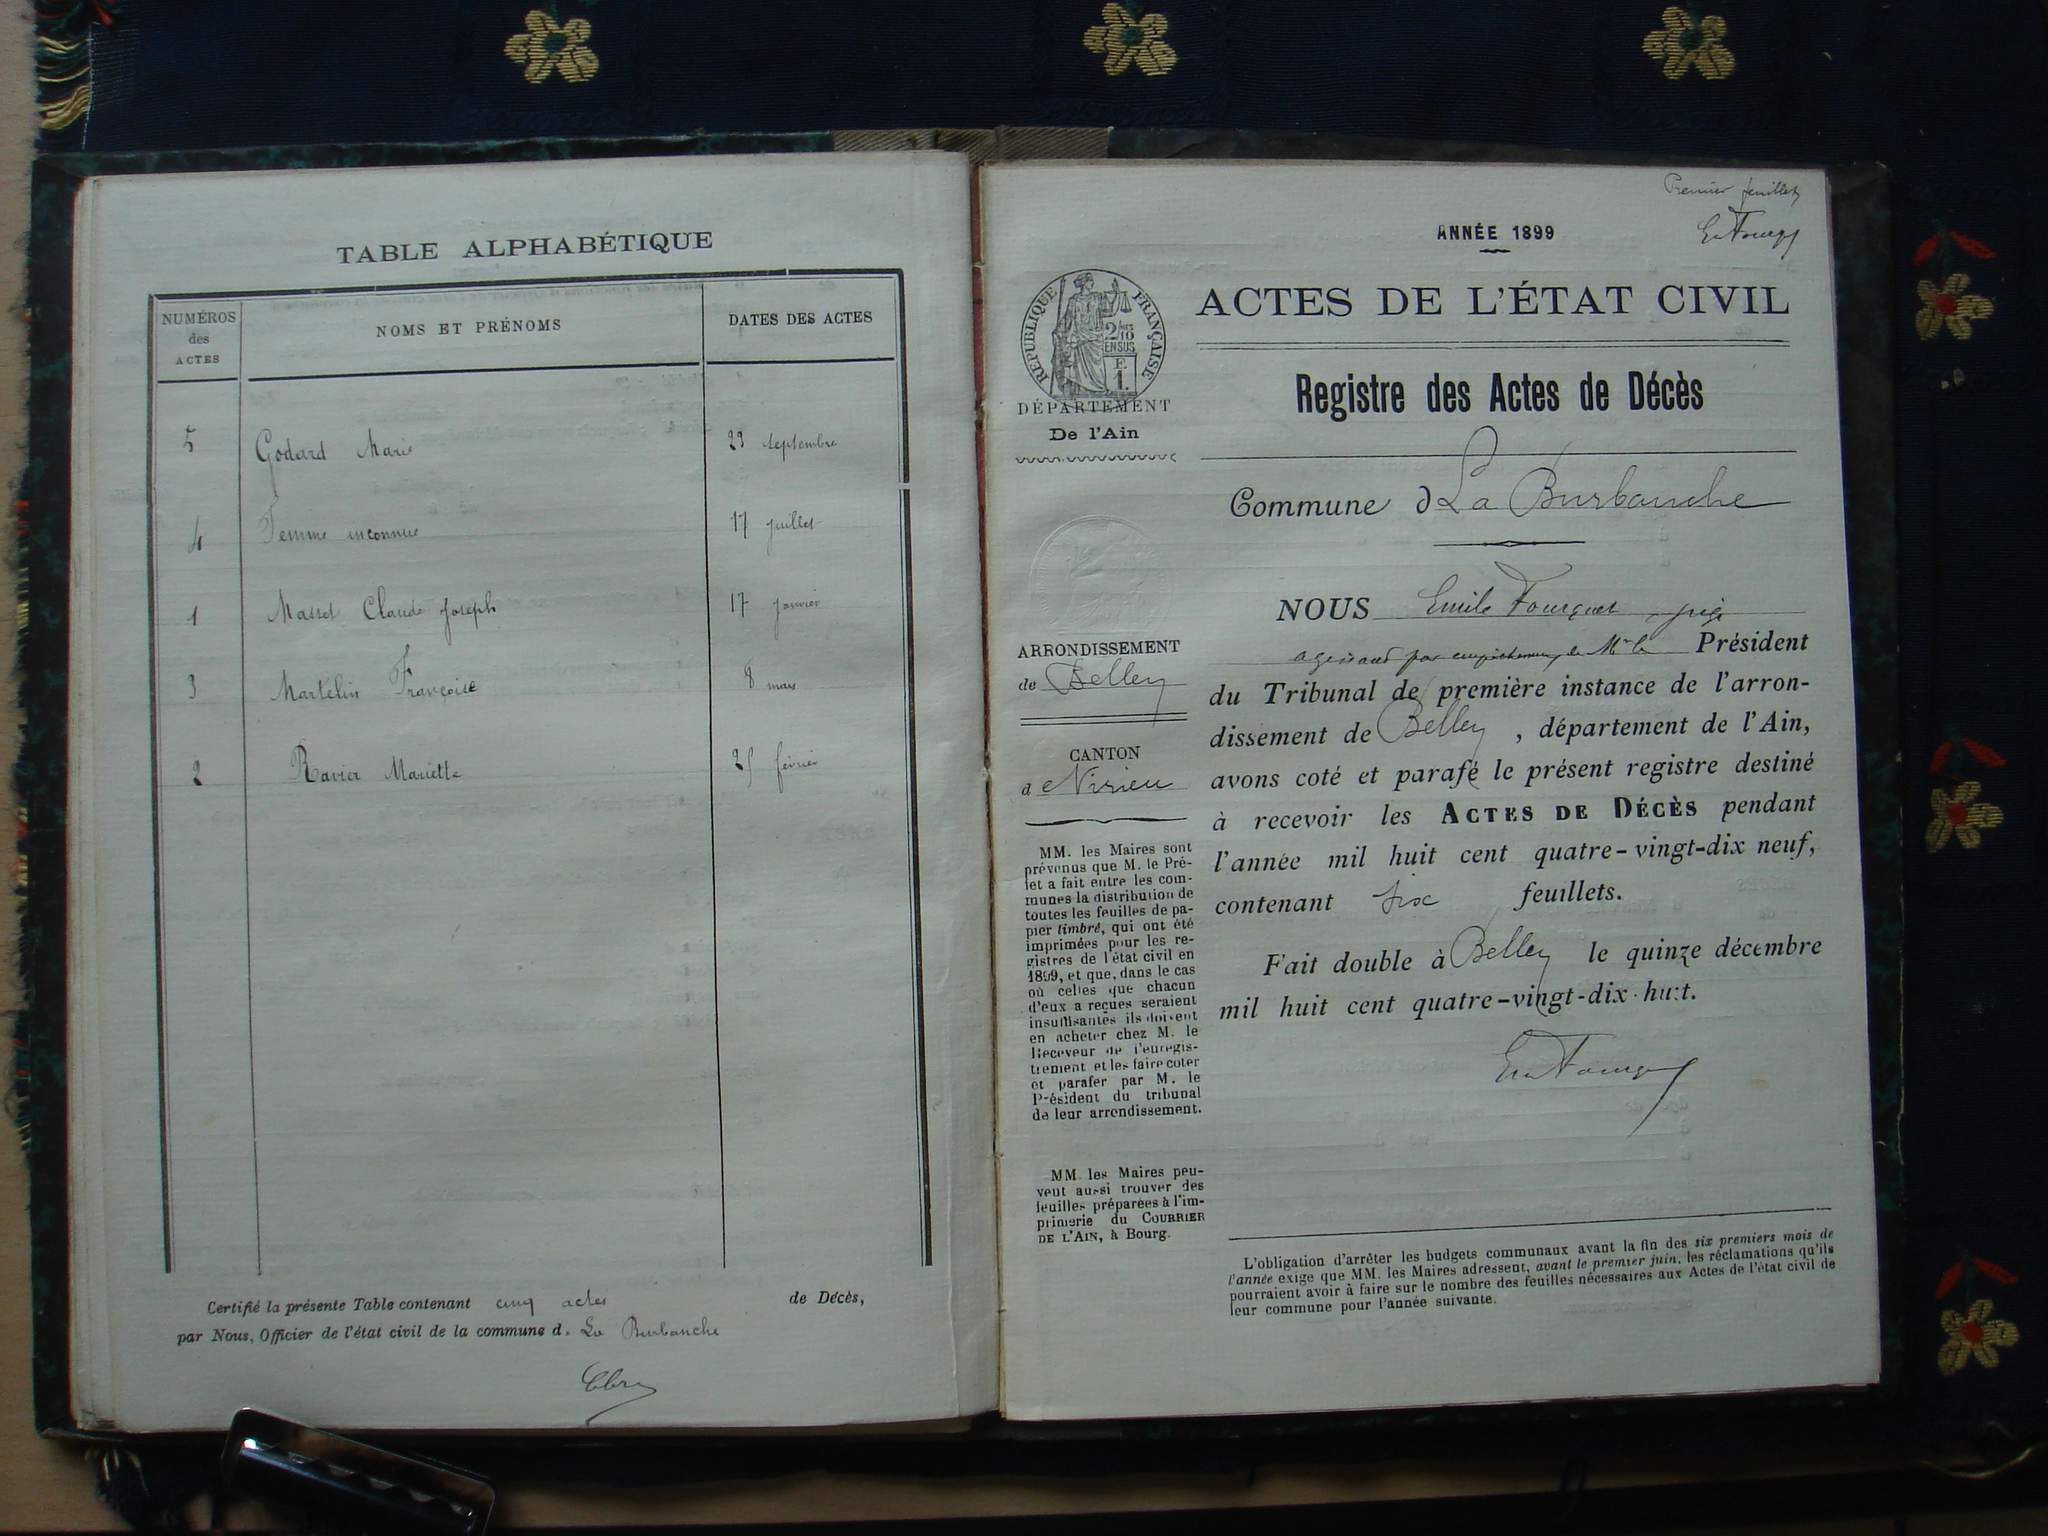 TABLE ALPHABÉTIQUE
NUMÉROS des ACTES
NOMS ET PRÉNOMS
DATES DES ACTES
5 Godard Marie 23 septembre
4 Femme inconnue 17 juillet
1 Claude Joseph 17 janvier
3 Martelin Françoise 8 mars
2 Ravier Mariette 25 février
Certifié la présente Table contenant cinq actes de Décès,
par Nous, Officier de l'état civil de la commune d. La Burbanche
Premier feuillet
ANNÉE 1899
ACTES DE L'ÉTAT CIVIL
RÉPUBLIQUE FRANÇAISE
2/10
EN SUS
F.
1.
DÉPARTEMENT
De l'Ain
Registre des Actes de Décès
Commune d La Burbanche
ARRONDISSEMENT
de Belley
CANTON
d Virieu
MM. les Maires sont
prévenus que M. le Pré-
fet a fait entre les com-
munes la distribution de
toutes les feuilles de pa-
pier timbré, qui ont été
imprimées pour les re-
gistres de l'état civil en
1899, et que, dans le cas
où celles que chacun
d'eux a reçues seraient
insuffisantes ils doivent
en acheter chez M. le
Receveur de l'enregis-
trement et les faire coter
et parafer par M. le
Président du tribunal
de leur arrondissement.
MM. les Maires peu-
vent aussi trouver des
feuilles préparées à l'im-
primerie du COURRIER
DE L'AIN, à Bourg.
NOUS Emile Fourquet, juge
agissant par empêchement de Mr le Président
du Tribunal de première instance de l'arron-
dissement de Belley, département de l'Ain,
avons coté et parafé le présent registre destiné
à recevoir les ACTES DE DÉCÈS pendant
l'année mil huit cent quatre-vingt-dix neuf,
contenant six feuillets.
Fait double à Belley le quinze décembre
mil huit cent quatre-vingt-dix-huit.
Em Fourquet
L'obligation d'arrêter les budgets communaux avant la fin des six premiers mois de
l'année exige que MM. les Maires adressent, avant le premier juin, les réclamations qu'ils
pourraient avoir à faire sur le nombre des feuilles nécessaires aux Actes de l'état civil de
leur commune pour l'année suivante.